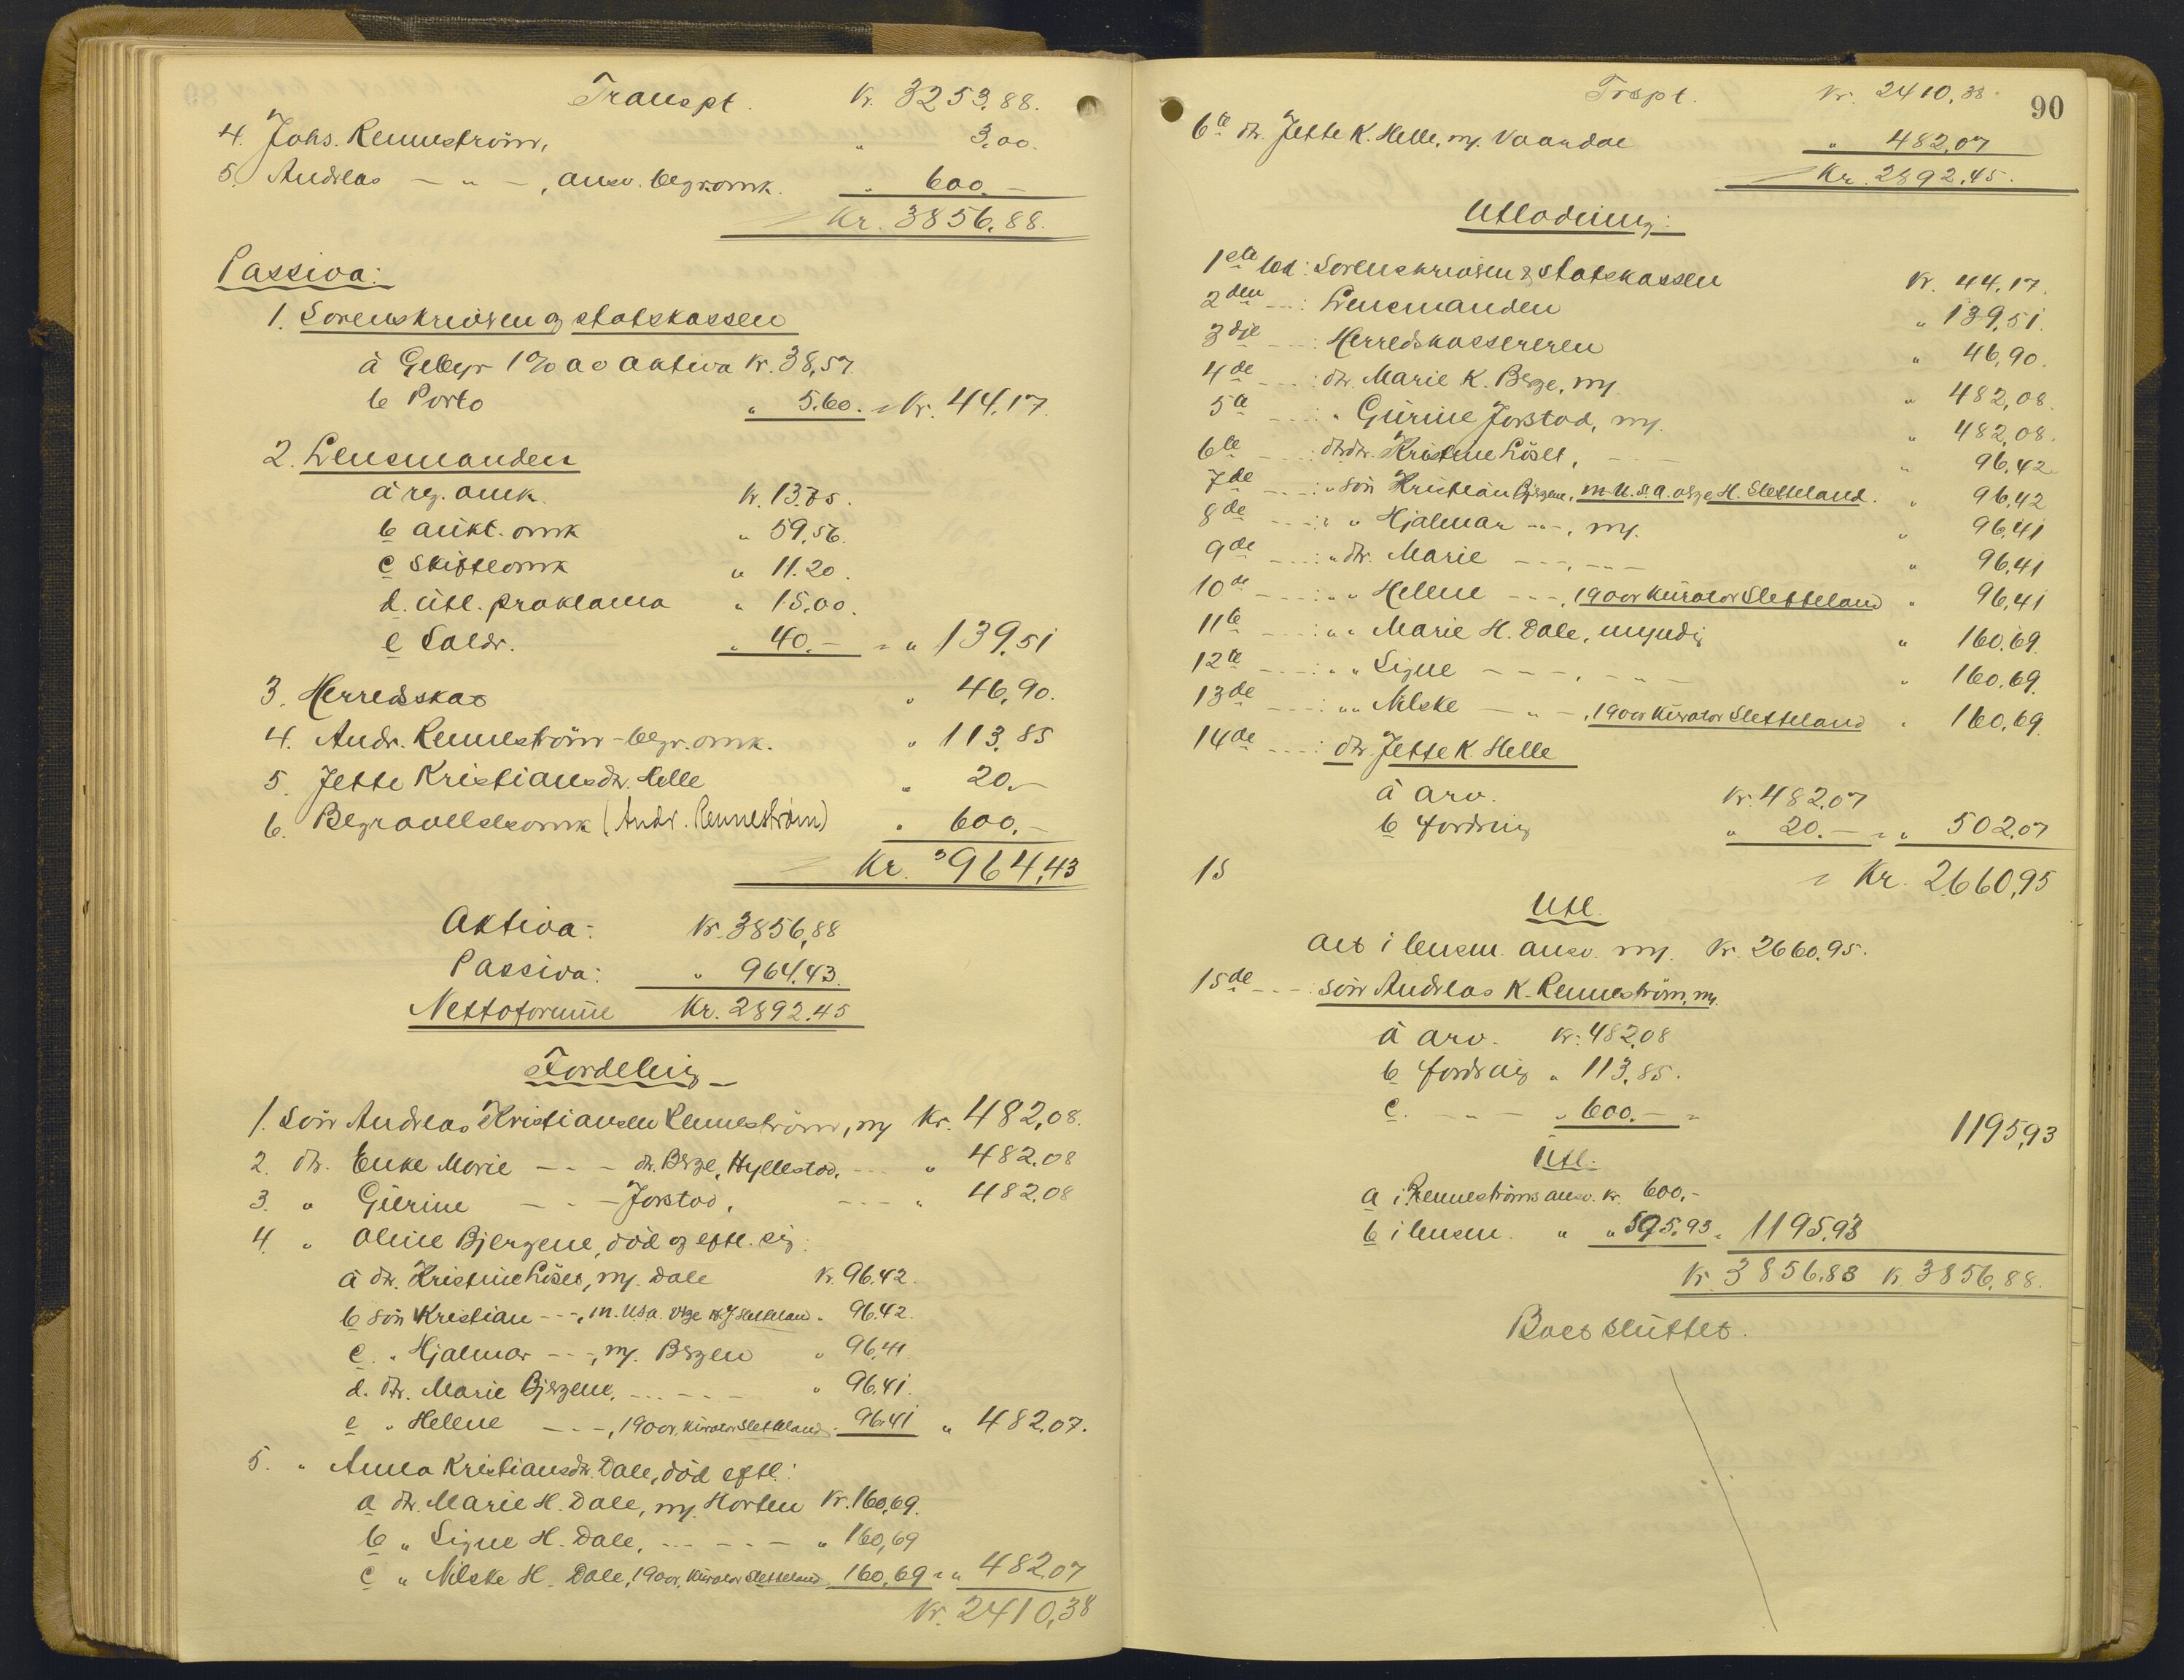 Transpt. Kr. 3253.88.
4. Johs. Renneström, " 3.00.
5. Andreas — " — , ansv. begr.omk. " 600.—
Kr. 3856.88.
Passiva:
1. Sorenskriveren og statskassen
a Gebyr 1% av aktiva Kr. 38,57
b Porto " 5.60. = Kr. 44.17.
2. Lensmanden
a reg. omk. Kr. 13.75.
b aukt. omk " 59,56.
c skifteomk " 11.20.
d. utl. proklama " 15,00.
e Saldr. " 40.— = " 139,51
3. Herredsskat " 46,90.
4. Andr. Renneström - begr. omk. " 113.85
5. Jette Kristiansdtr. Helle " 20.—
6. Begravelsesomk (Andr. Renneström) " 600.—
Kr. 964,43
Aktiva: Kr. 3856,88
Passiva: " 964.43.
Nettoformue Kr. 2892.45
Fordeling
1. Sön Andreas Kristiansen Renneström, my Kr. 482,08.
2. dtr. Enke Marie - - - dtr. Berge, Hyllestad, - - - " 482.08
3. " Gurine — - — Jorstad, - - - " 482.08
4. " Oline Bjergene, död og eftl. sig:
a dtr. Kristine Löset, my. Dale Kr. 96.42.
b sön Kristian - - -, m. U.S.A. verge Sletteland " 96.42.
c. " Hjalmar - - -, my. Bergen " 96,41
d. dtr. Marie Bjergene, - - - - - " 96.41.
e " Helene - - -, 19 aar, kurator Sletteland " 96.41 " 482.07.
5. " Anna Kristiansdtr. Dale, död eftl.:
a dtr. Marie H. Dale, my. Horten Kr. 160,69.
b " Signe H. Dale, - - - - - - " 160,69
c " Nilske H. Dale, 19 aar, kurator Sletteland 160.69 = " 482.07
Kr. 2410,38
90
Trspt. Kr. 2410.38
6te dtr. Jette K. Helle, my. Vaandal " 482.07
Kr. 2892.45.
Utlodning:
1ste lod: Sorenskriveren & statskassen Kr. 44.17.
2den - - -: Lensmanden " 139,51.
3die - - -: Herredskassereren " 46,90.
4de - - -: dtr. Marie K. Berge, my. " 482,08.
5te - - -: " Gurine Jorstad, my. " 482,08.
6te - - -: dtrdtr. Kristine Löset, - - - " 96,42
7de - - -: " sön Kristian Bjergene, m U.S.A. verge H. Sletteland. " 96,42
8de - - -: " " Hjalmar - " -, my. " 96,41
9de - - -: " dtr. Marie - - -, - - - " 96,41
10de - - -: " " Helene - - -, 19 aar kurator Sletteland " 96,41
11te - - -: " " Marie H. Dale, myndig " 160.69.
12te - - -: " " Signe - - - , - - - " 160.69.
13de - - -: " " Nilske — " —, 19 aar kurator Sletteland " 160,69.
14de - - -: dtr. Jette K. Helle
a arv. Kr. 482,07
b fordring " 20.— = " 502.07
15 = Kr. 2660,95
Utl.
alt i lensm. ansv. my. Kr. 2660.95.
15de - - -: sön Andreas K. Renneström, my.
a arv. Kr. 482,08
b fordring " 113.85.
c. — " — " 600.— =
1195,93
Utl.
a i Renneströms ansv. Kr. 600.-
b i lensm. " " 595.93 = 1195.93
Kr. 3856.88 Kr. 3856,88.
Boet sluttet.